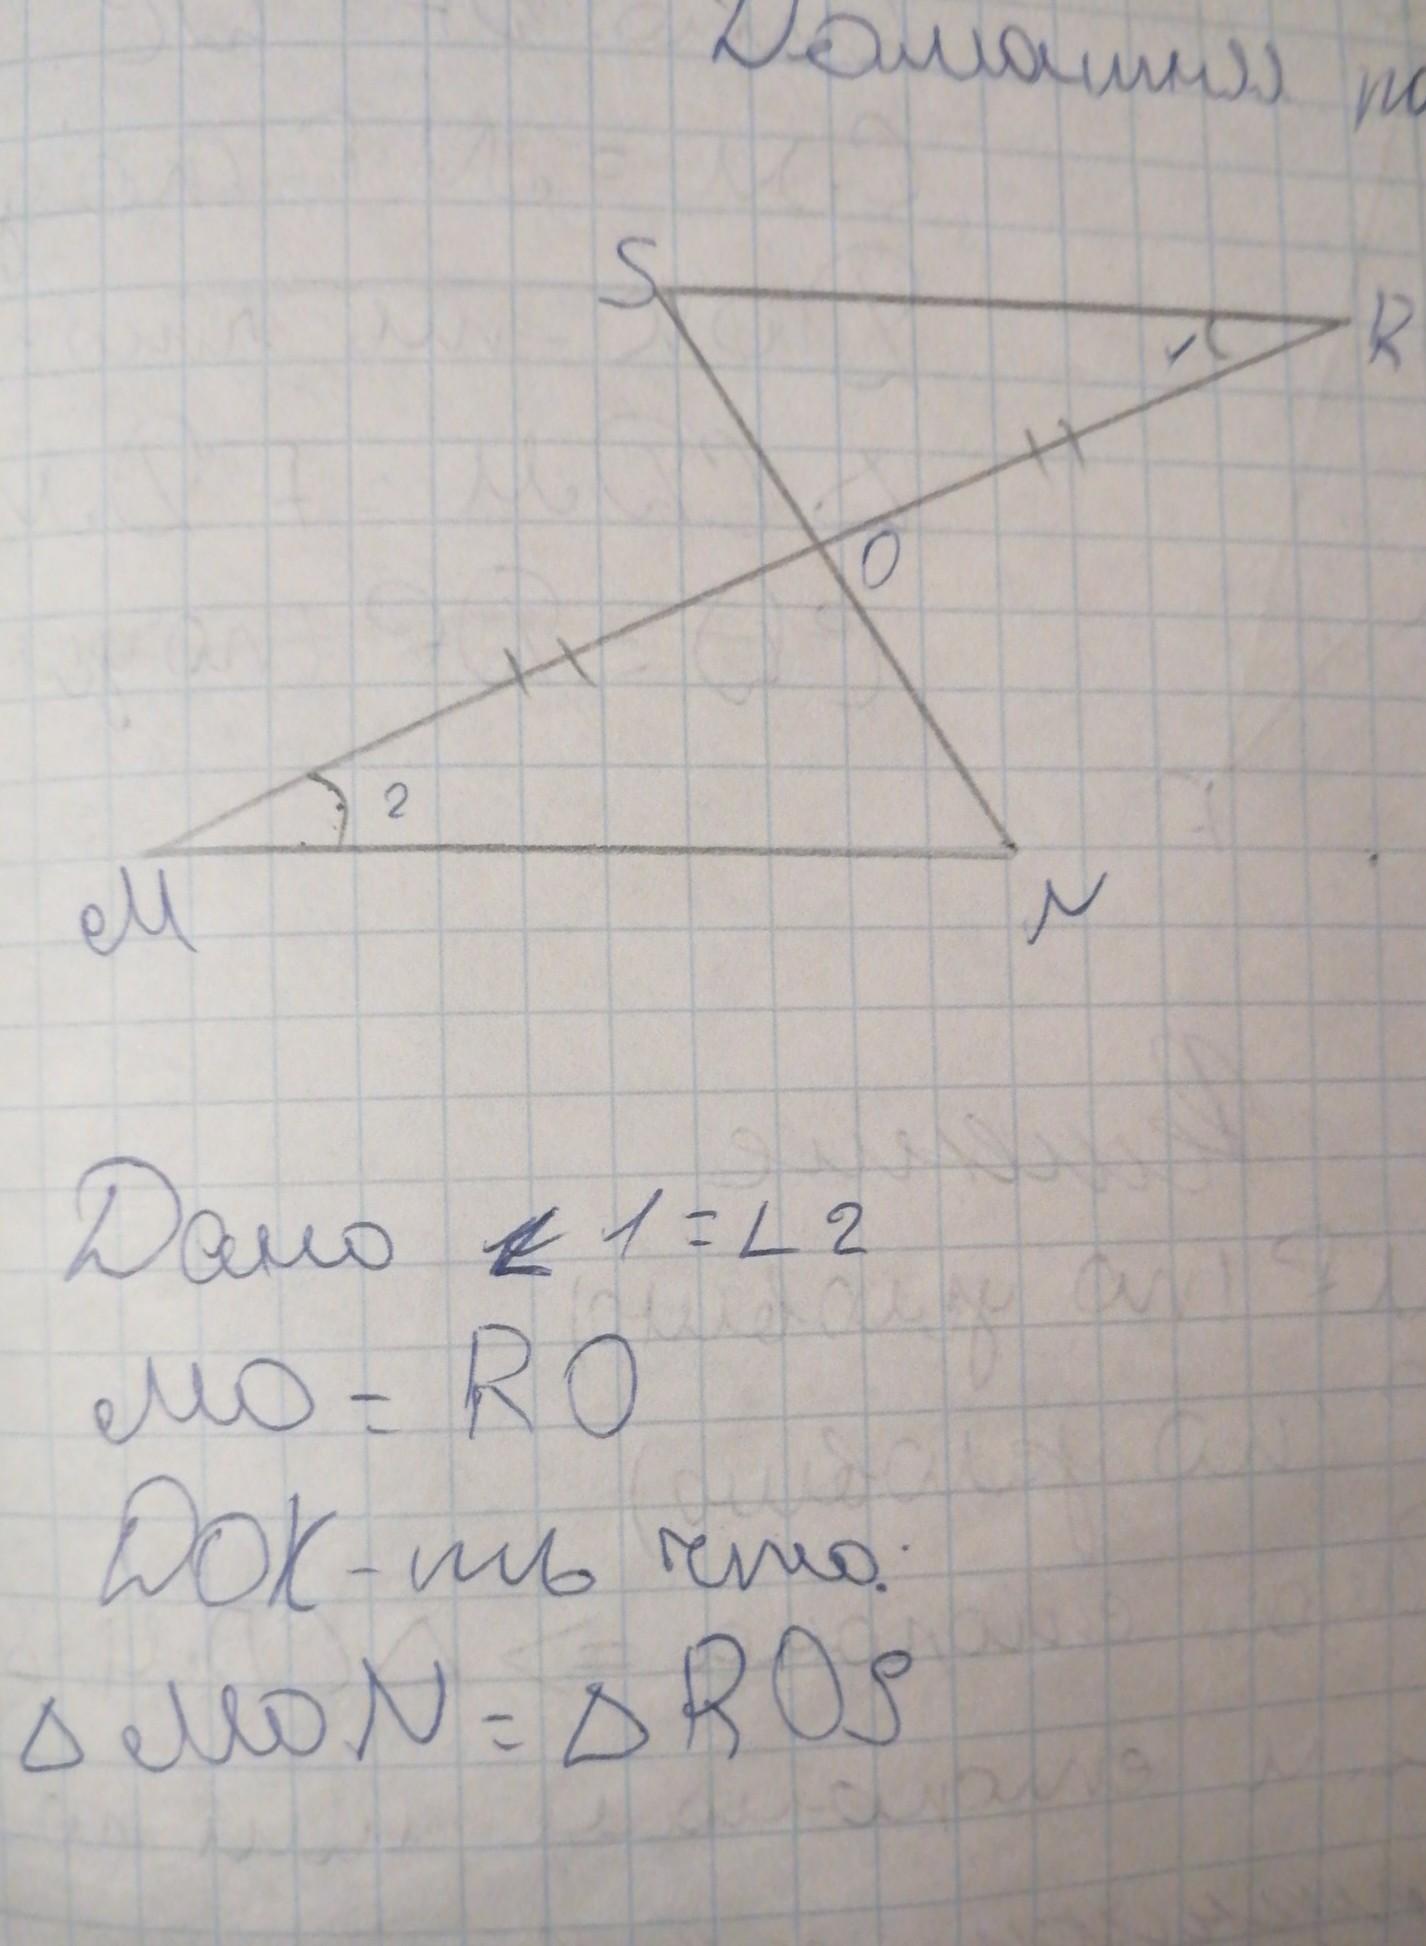 Домашняя
S
R
1
O
2
M
N
Дано ∠1=∠2
MO = RO
Док-ть что:
Δ MON = Δ ROS